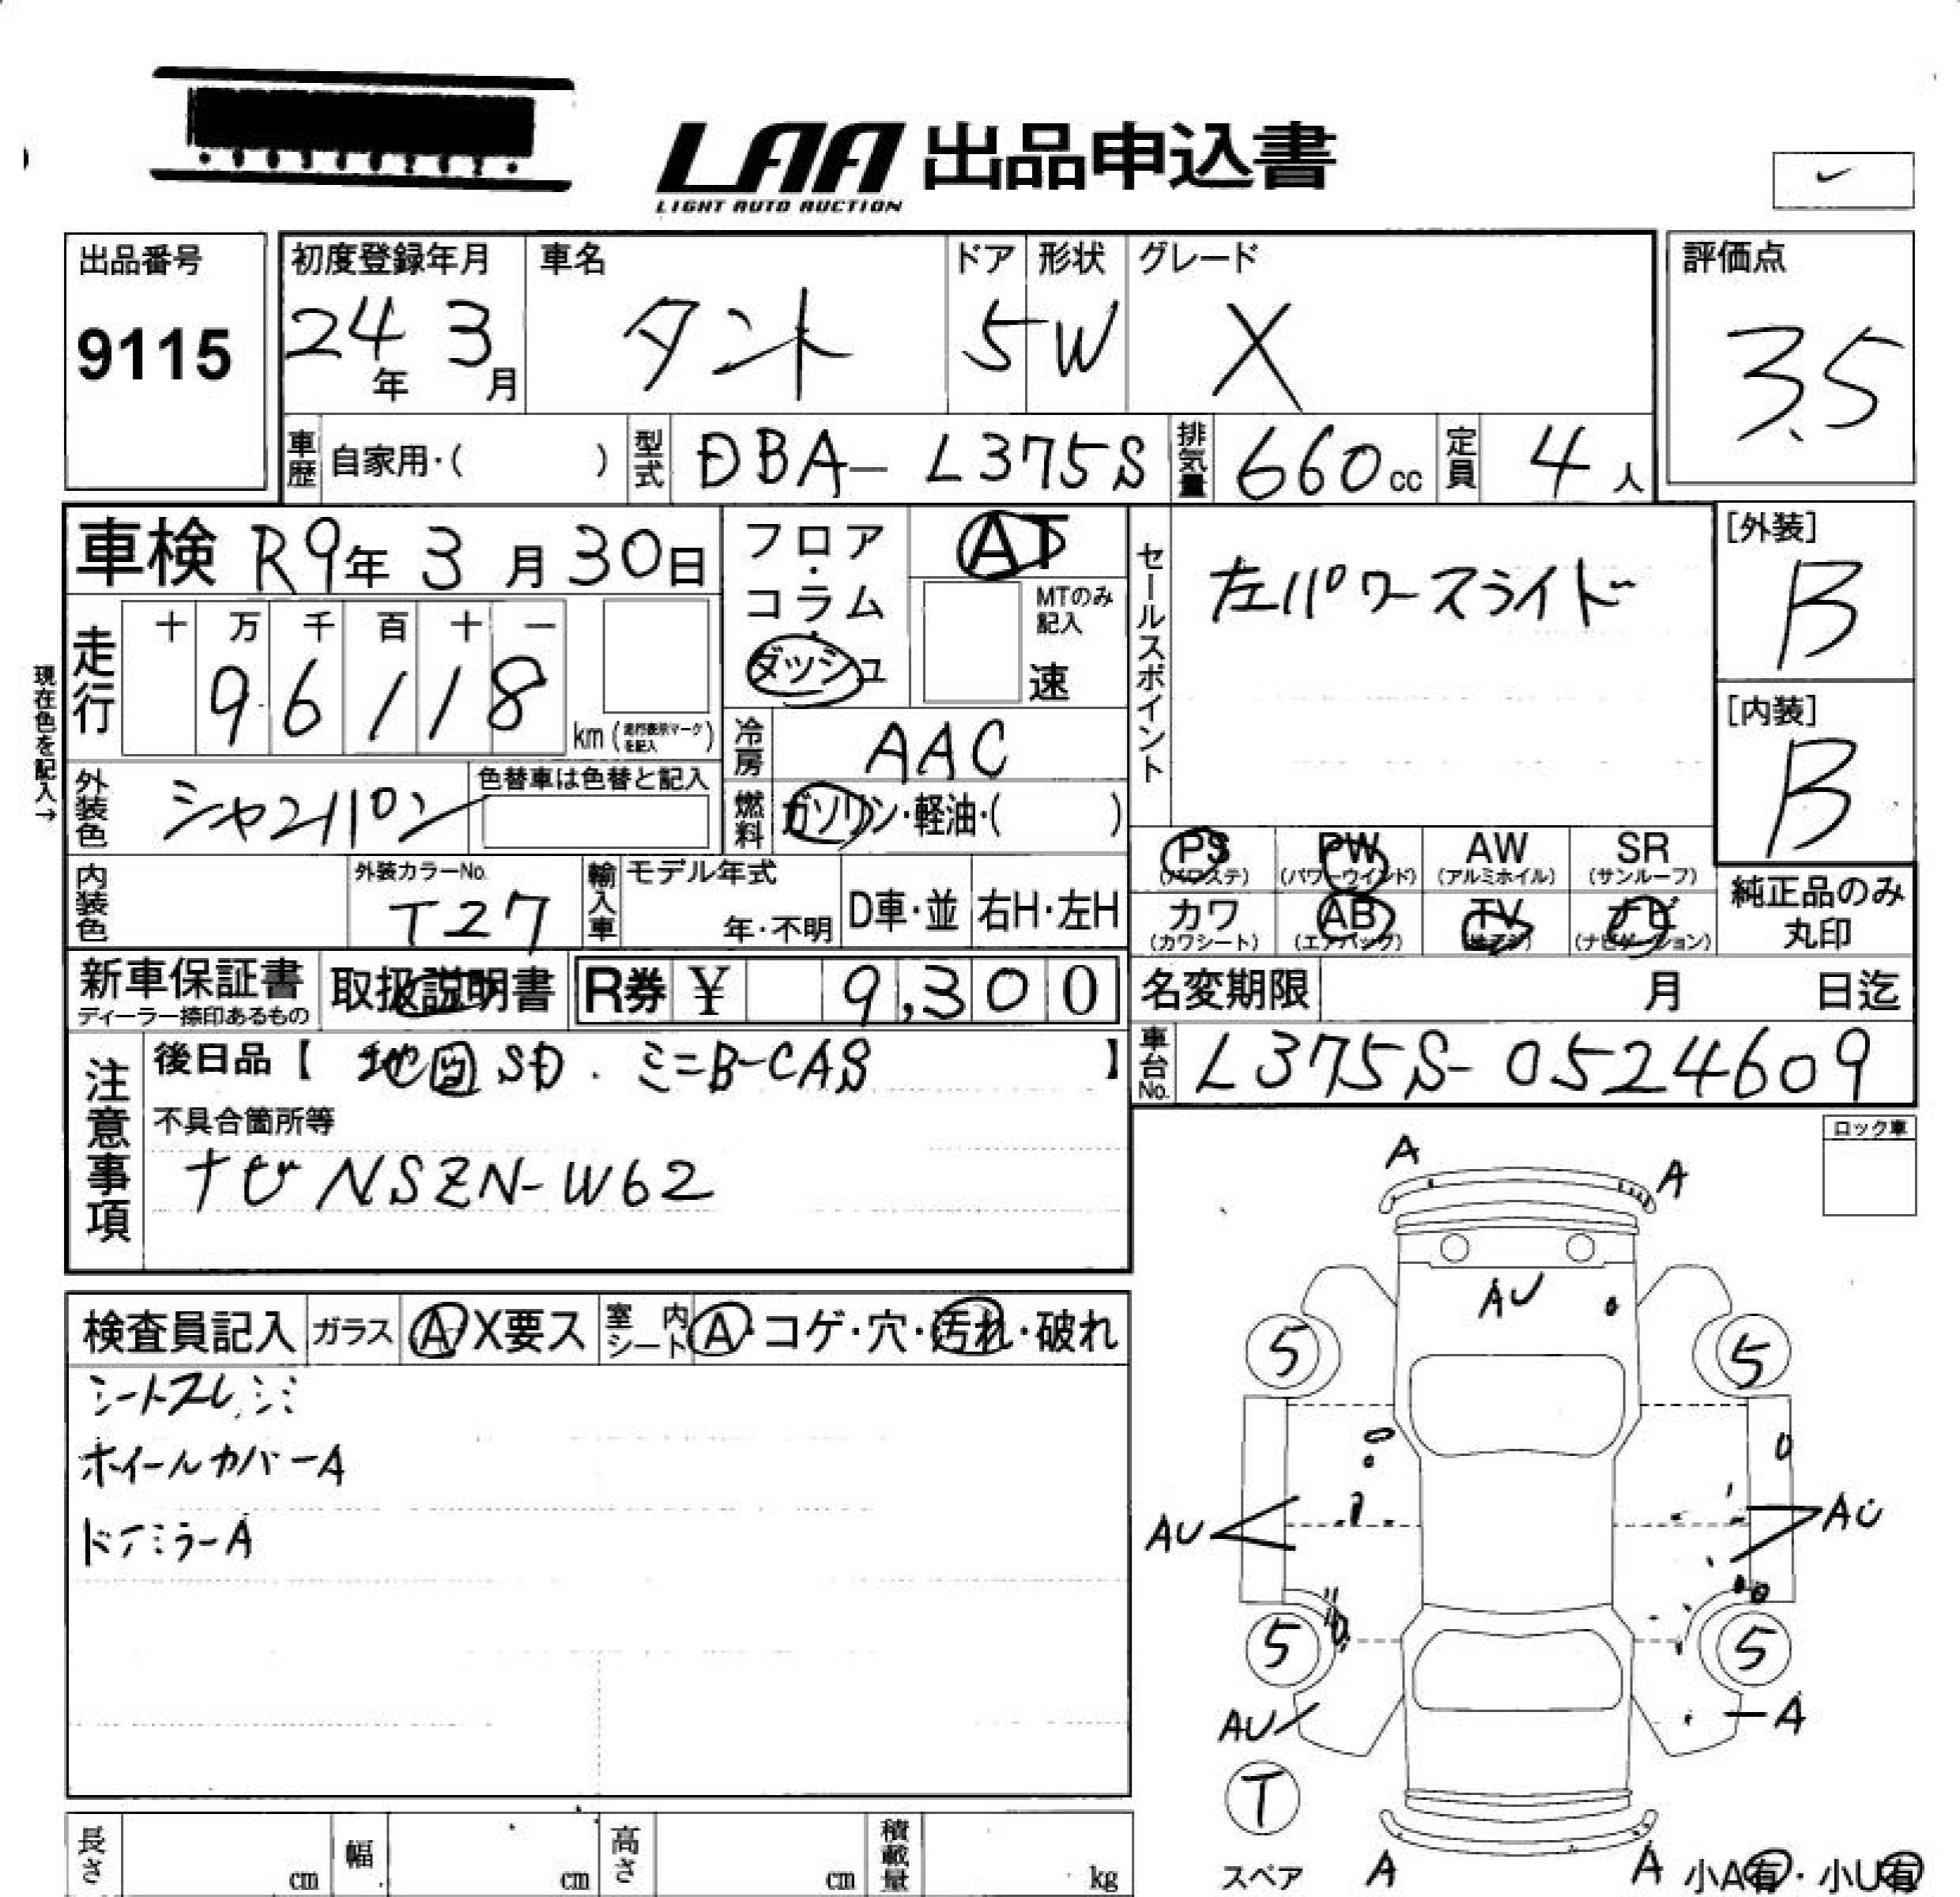 LAA 出品申込書
LIGHT AUTO AUCTION
出品番号 初度登録年月 車名 ドア 形状 グレード 評価点
9115 24年 3月 タント 5 W X 3.5
車歴 自家用・( ) 型式 DBA- L375S 排気量 660cc 定員 4人
車検 R9年 3月 30日 フロア・コラム・ダッシュ AT セールスポイント 左パワースライド [外装] B
MTのみ記入 速
現在色を記入→
走行 十 万 千 百 十 一
96118 km (走行表示マークを記入)
[内装] B
冷房 AAC
外装色 シャンパン 色替車は色替と記入 燃料 ガソリン・軽油・( )
PS (パワステ) PW (パワーウインド) AW (アルミホイル) SR (サンルーフ)
カワ (カワシート) AB (エアバッグ) TV (テレビ) ナビ (ナビゲーション) 純正品のみ丸印
内装色 外装カラーNo. T27 輸入車 モデル年式 年・不明 D車・並 右H・左H
新車保証書 ディーラー捺印あるもの 取扱説明書 R券 ¥ 9,300 名変期限 月 日迄
注意事項 後日品【 地図SD . ミニB-CAS 】 車台No. L375S-0524609
不具合箇所等
ナビ NSZN-W62
ロック車
検査員記入 ガラス A X要ス 室内シート A・コゲ・穴・汚れ・破れ
シートスレ
ホイールカバーA
ドアミラーA
A A
AU
5 5
AU AU
5 5
AU A
T
スペア
A A
小A有・小U有
長さ cm 幅 cm 高さ cm 積載量 kg